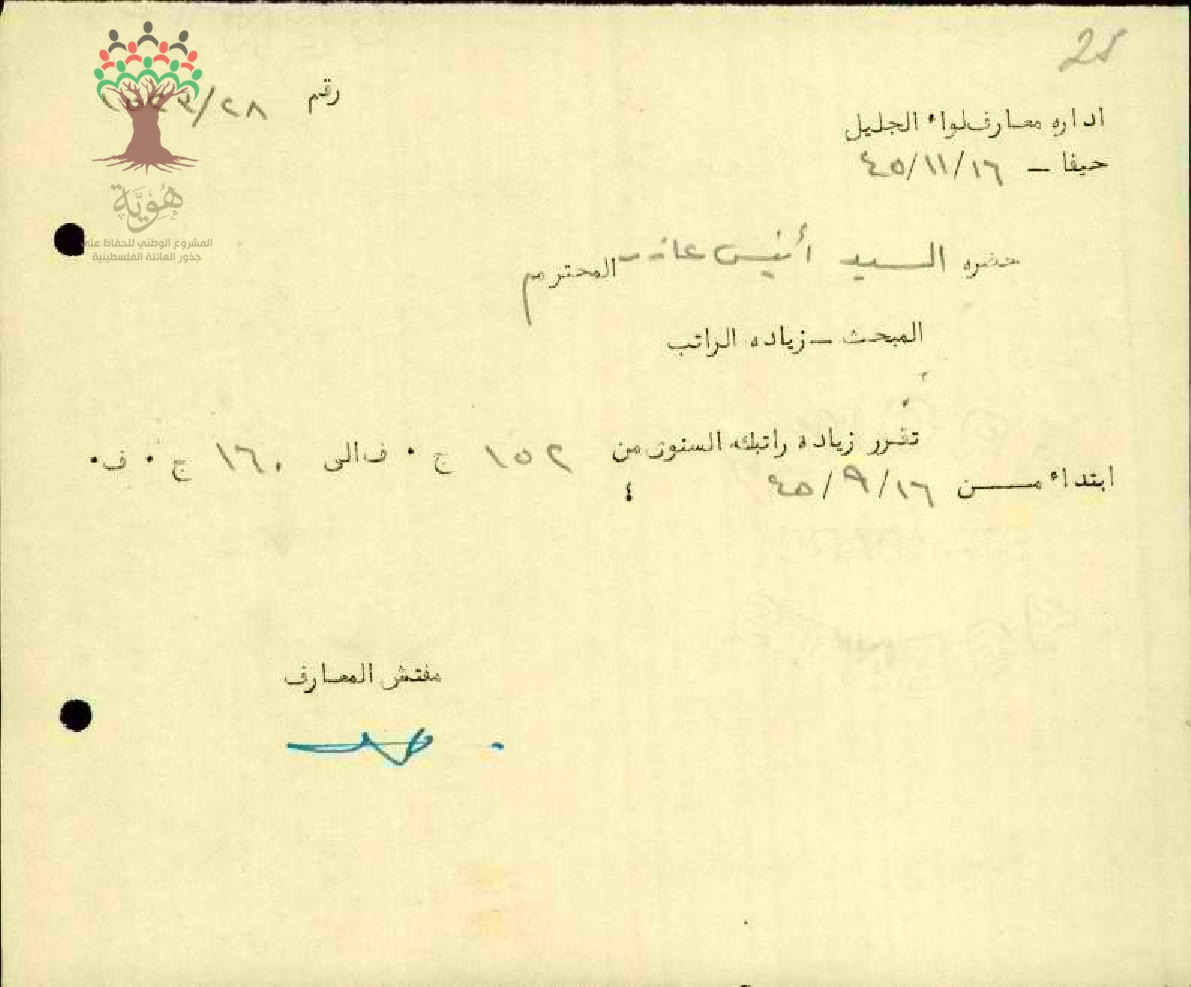 25
رقم ٢٨/
اداره معارف لواء الجليل
حيفا – ٤٥/١١/١٦
هُوِيَّة
المشروع الوطني للحفاظ على
جذور العائلة الفلسطينية
حضره السيد أنيس المحترم
المبحث – زياده الراتب
تقرر زيادة راتبك السنوى من ١٥٢ ج ٠ ف الى ١٦٠ ج ٠ ف٠
ابتداء من ٤٥/٩/١٦
مفتش المعارف